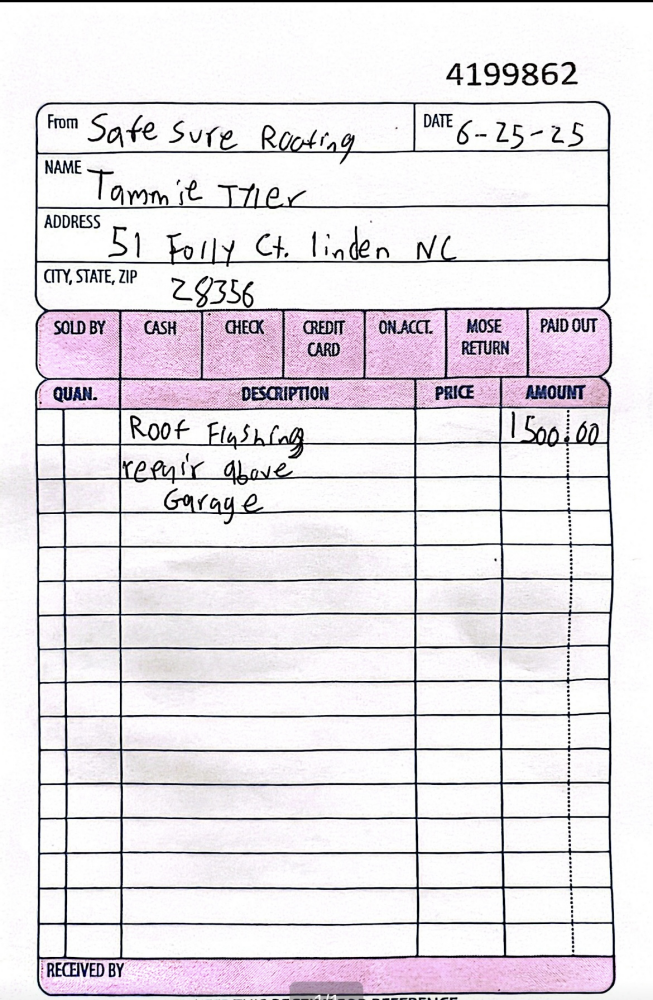 4199862
From Safe Sure Roofing DATE 6-25-25
NAME Tammie Tyler
ADDRESS 51 Folly Ct. linden NC
CITY, STATE, ZIP 28356
SOLD BY CASH CHECK CREDIT CARD ON.ACCT. MOSE RETURN PAID OUT
QUAN. DESCRIPTION PRICE AMOUNT
Roof Flashing 1500.00
repair above
Garage
RECEIVED BY